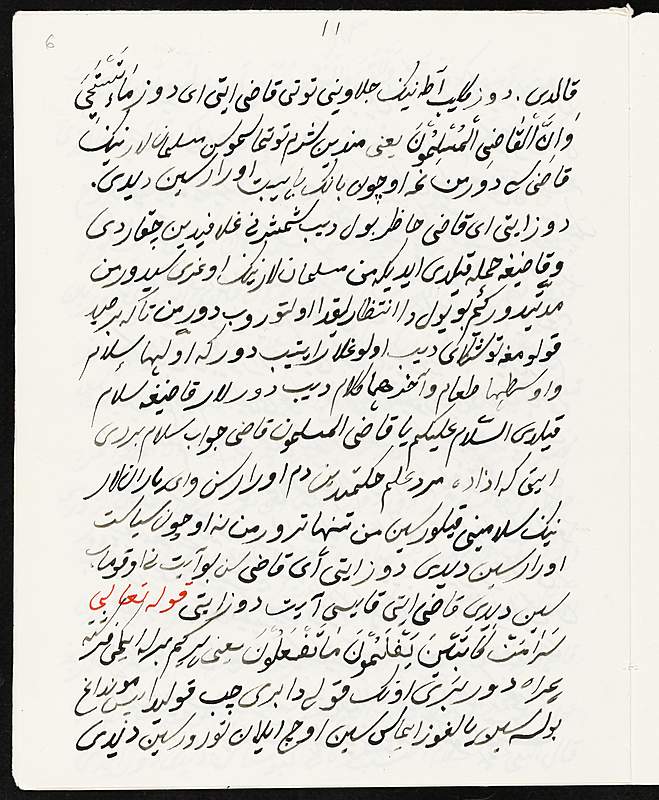 ١١
6
قالدی . دوز رکاب نینک جلاوینی توتی قاضی ایتی ای دوز ماء تستحی
وان القاضی المسلمون یعنی مندین شرم توتماسموسن مسلمانلار نینک
قاضی سی دورمن نه اوچون بانک با هیبت اورارسین دیدی .
دوز ایتی ای قاضی حاظر بول دیب شمشیر نی غلافیدین چقاردی
و قاضیغه حمله قیلدی ایدیکه من مسلمانلار نینک اوغری سیدورمن
مدتیدورکیم بو یول دا انتظارلیقدا اولتوروب دورمن تا که بر صید
قولومغه توشکای دیب اولوغلار ایتیب دور که اولها سلام
و اوسطها طعام و آخرهما کلام دیب دورلار قاضیغه سلام
قیلدی السلام علیکم یا قاضی المسلمون قاضی جواب سلام بردی
ایتی که مرد علم حکمتدین دم اورارسن و ای یارانلار
نینک سلامینی قیلورسین من تنها ترورمن نه اوچون سیاست
اورارسین دیدی دوز ایتی ای قاضی سن بو آیت نی اوقوماب
سین دیدی قاضی ایتی قایسی آیت دوز ایتی قوله تعالی
کاتبین یعلمون ما تفعلون یعنی هرکیم برله ایکی فرشته
همراه دور بری اونک قولی دا بری چپ قولیدا ایسه مونداغ
بولسه سین یالغوز ایماس سین اوچ ایلان تورورسین دیدی